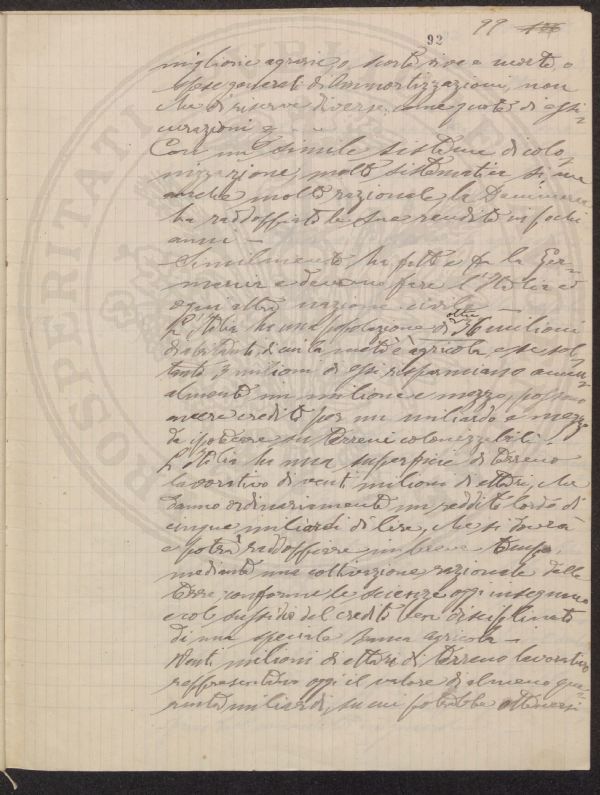 92
99 106
miglioria agrario, scorte vive e morte, e
spese generali di ammortizzazioni, non
che di riserve diverse, come quote di assi-
curazioni e . . .
Con un simile sistema di colo-
nizzazione, molto sistematica si, ma
anche molto razionale, la Danimarca
ha raddoppiato le sue rendite in pochi
anni —
Similmente ha fatto e fa la Ger-
mania e devono fare l'Italia e
ogni altra nazione civile.
L'Italia ha una popolazione di oltre 36 milioni
di abitanti, di cui la metà è agricola, e se sol-
tanto 3 milioni di essi risparmiano annu-
almente un milione e mezzo, possono
avere credito per un miliardo e mezzo
da ipotecare su terreni colonizzabili.
L'Italia ha una superficie di terreno
lavorativo di venti milioni di ettari, che
danno ordinariamente un reddito lordo di
cinque miliardi di lire, che si dovrà
e potrà raddoppiare in breve tempo,
mediante una coltivazione razionale delle
terre, conforme le scienze oggi insegnano
e col sussidio del credito ben disciplinato
di una speciale Banca agricola —
Venti milioni di ettari di terreno lavorativo
rappresentano oggi il valore di almeno qua-
ranta miliardi, su cui potrebbe ottenersi
PROSPERITATI PUBLICAE